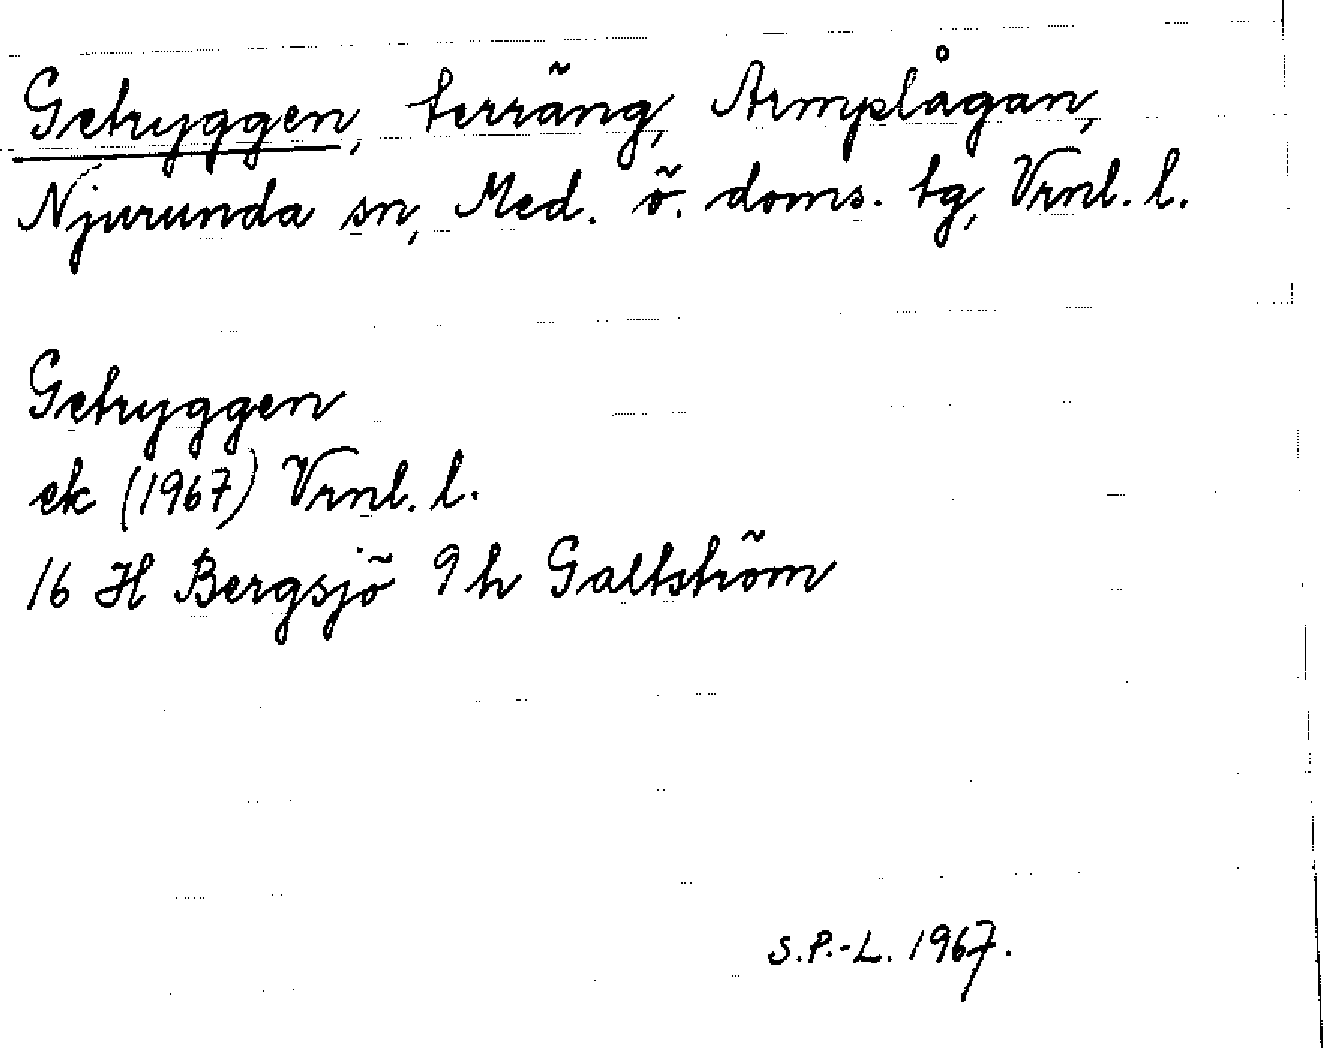 Getryggen, terräng, Armplågan,
Njurunda sn, Med. ö. doms. tg, Vrnl. l.
Getryggen
ek (1967) Vrnl. l.
16 H Bergsjö 9 h Galtström
S.P.-L. 1967.